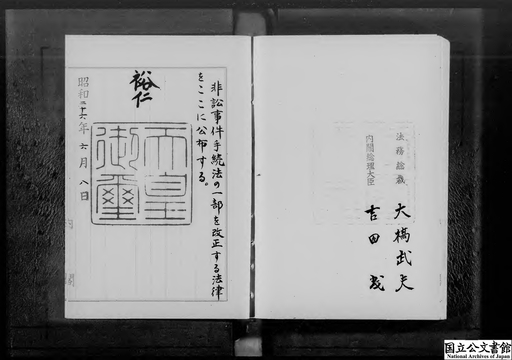 法務総裁
大橋武夫
内閣総理大臣
吉田茂
非訟事件手続法の一部を改正する法律
をここに公布する。
裕仁
天皇
御璽
昭和二十六年六月八日
国立公文書館
National Archives of Japan